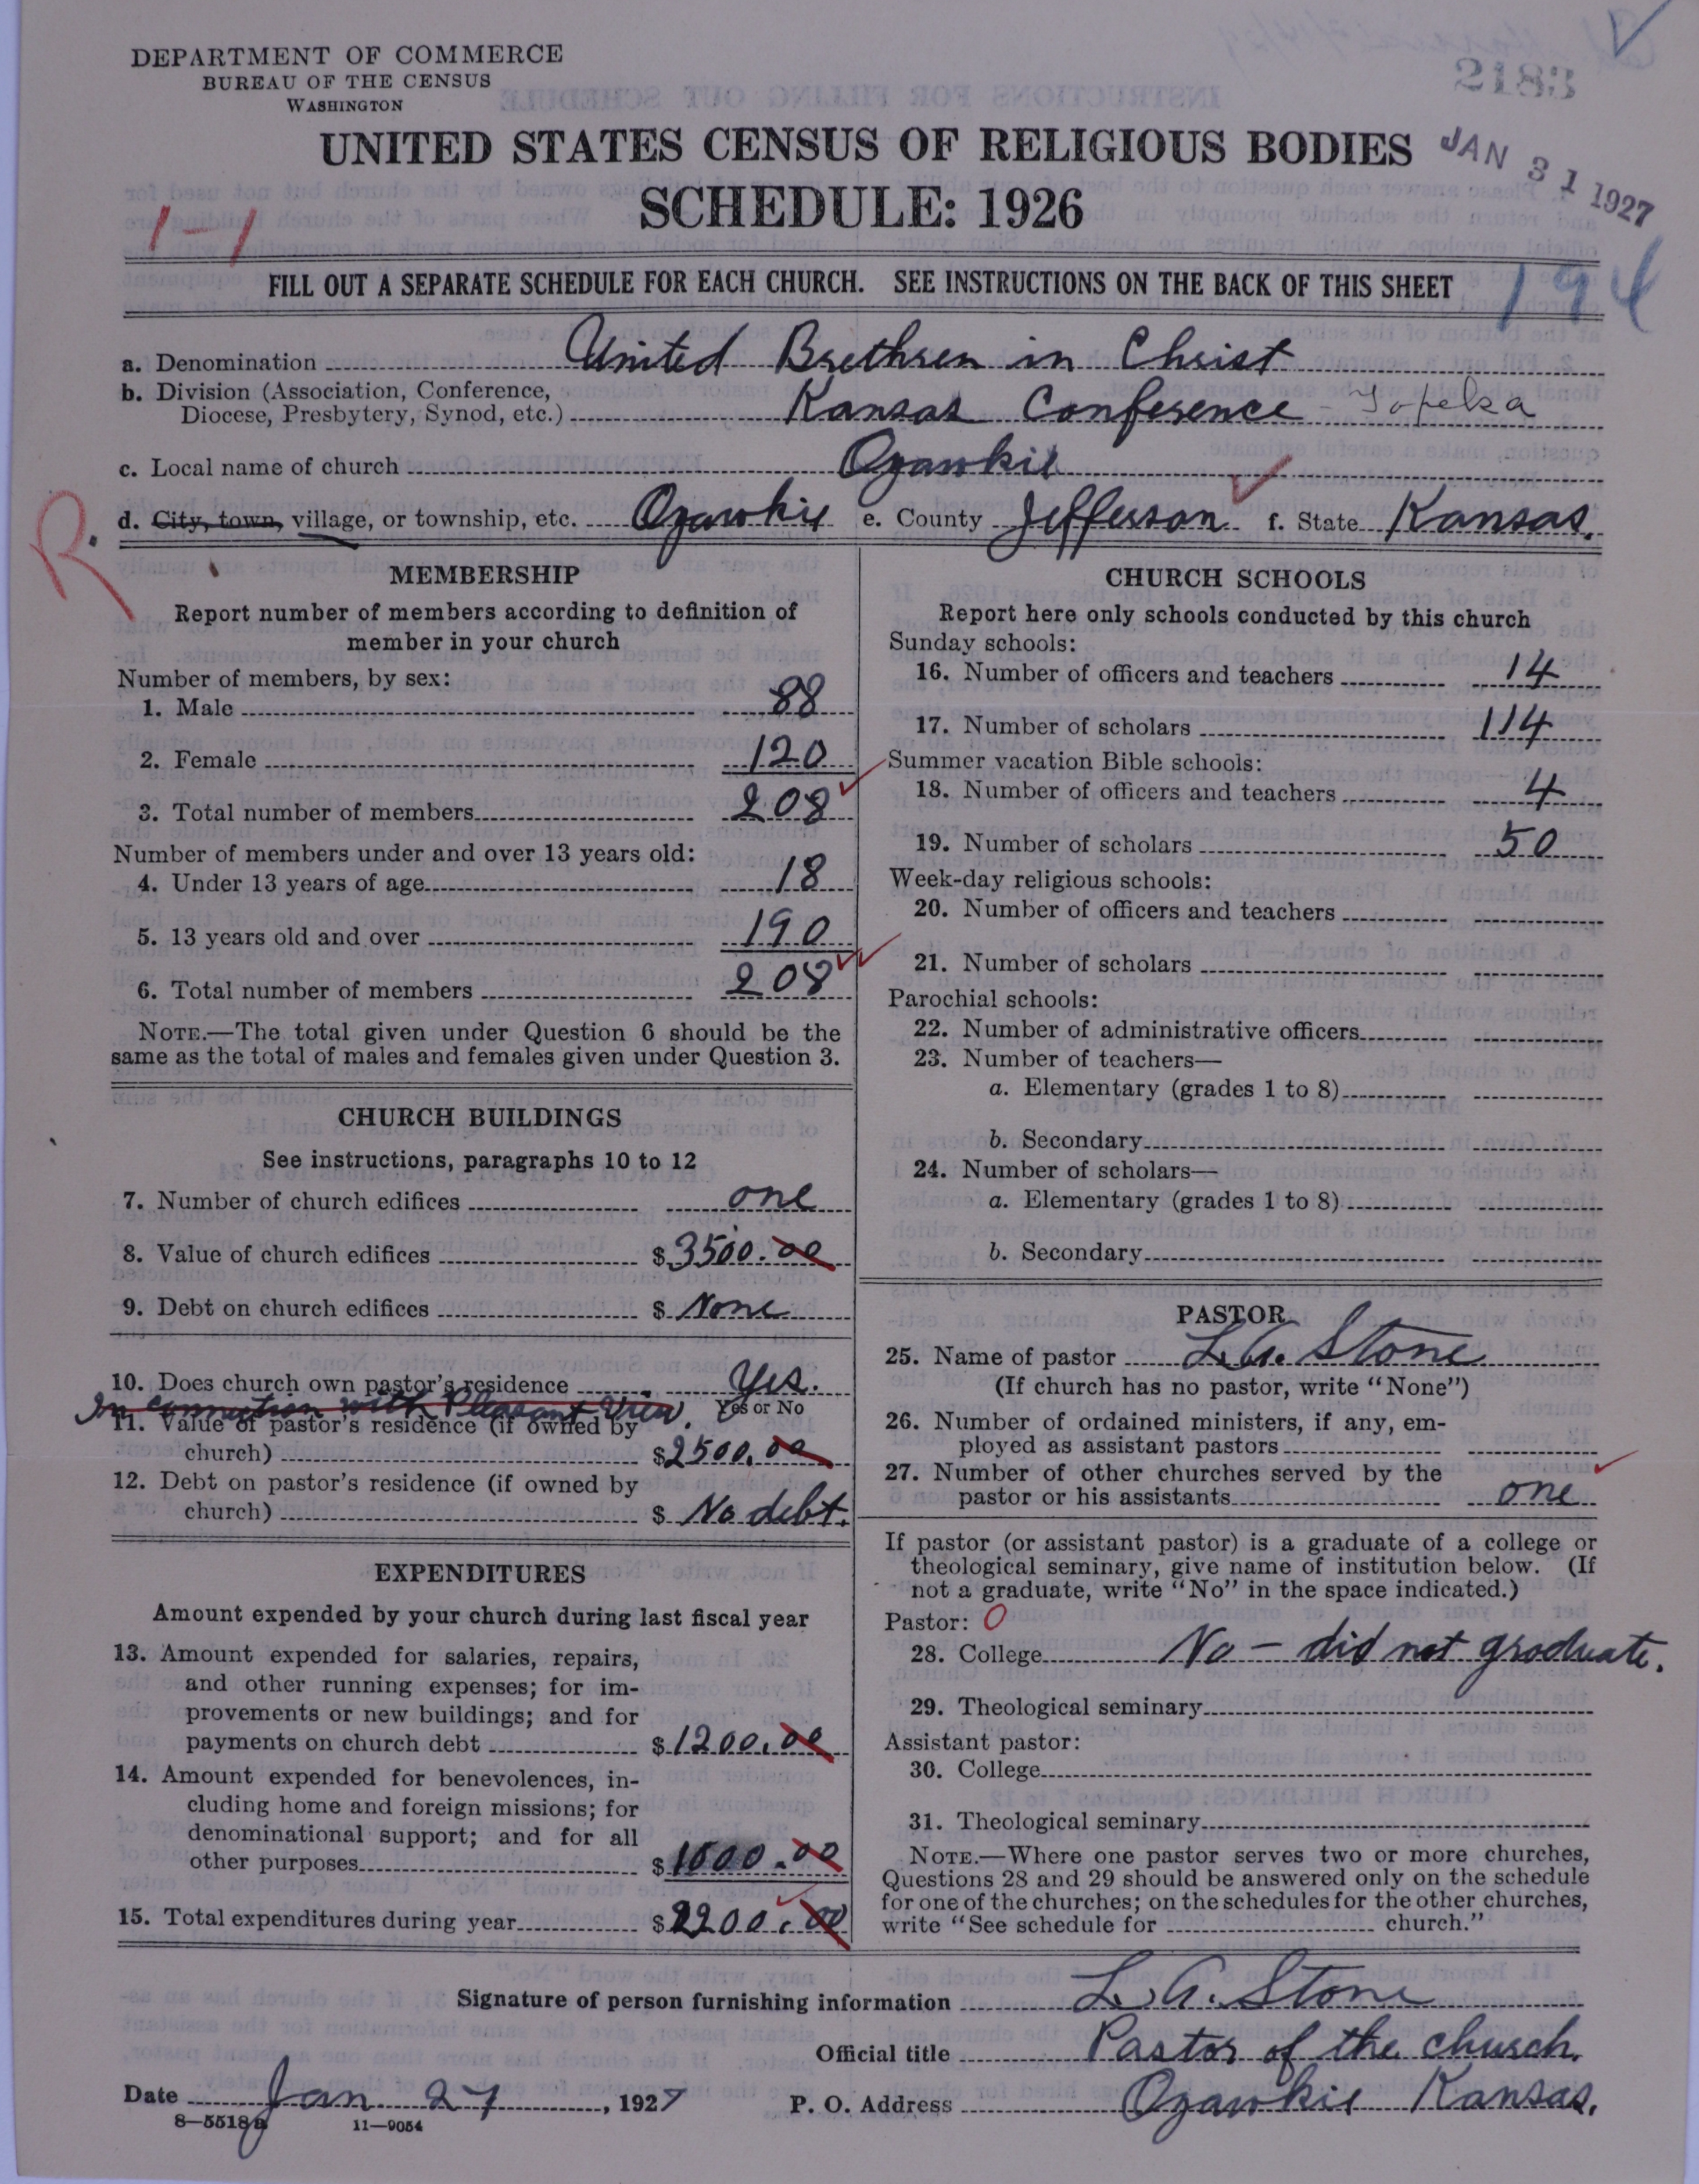 DEPARTMENT OF COMMERCE
BUREAU OF THE CENSUS
WASHINGTON
2183
UNITED STATES CENSUS OF RELIGIOUS BODIES
JAN 31 1927
SCHEDULE: 1926
1-1
FILL OUT A SEPARATE SCHEDULE FOR EACH CHURCH. SEE INSTRUCTIONS ON THE BACK OF THIS SHEET
194
a. Denomination United Brethren in Christ
b. Division (Association, Conference,
Diocese, Presbytery, Synod, etc.) Kansas Conference - Topeka
c. Local name of church Ozawkie
d. City, town, village, or township, etc. Ozawkie e. County Jefferson f. State Kansas.
R.
MEMBERSHIP
Report number of members according to definition of
member in your church
Number of members, by sex:
1. Male 88
2. Female 120
3. Total number of members 208
Number of members under and over 13 years old:
4. Under 13 years of age 18
5. 13 years old and over 190
6. Total number of members 208
NOTE.—The total given under Question 6 should be the
same as the total of males and females given under Question 3.
CHURCH BUILDINGS
See instructions, paragraphs 10 to 12
7. Number of church edifices one
8. Value of church edifices $3500.00
9. Debt on church edifices $ None
10. Does church own pastor's residence Yes.
Yes or No
In connection with Pleasant View.
11. Value of pastor's residence (if owned by
church) $2500.00
12. Debt on pastor's residence (if owned by
church) $ No debt.
EXPENDITURES
Amount expended by your church during last fiscal year
13. Amount expended for salaries, repairs,
and other running expenses; for im-
provements or new buildings; and for
payments on church debt $1200.00
14. Amount expended for benevolences, in-
cluding home and foreign missions; for
denominational support; and for all
other purposes $1000.00
15. Total expenditures during year $2200.00
CHURCH SCHOOLS
Report here only schools conducted by this church
Sunday schools:
16. Number of officers and teachers 14
17. Number of scholars 114
Summer vacation Bible schools:
18. Number of officers and teachers 4
19. Number of scholars 50
Week-day religious schools:
20. Number of officers and teachers
21. Number of scholars
Parochial schools:
22. Number of administrative officers
23. Number of teachers—
a. Elementary (grades 1 to 8)
b. Secondary
24. Number of scholars—
a. Elementary (grades 1 to 8)
b. Secondary
PASTOR
25. Name of pastor L. A. Stone
(If church has no pastor, write "None")
26. Number of ordained ministers, if any, em-
ployed as assistant pastors
27. Number of other churches served by the
pastor or his assistants one
If pastor (or assistant pastor) is a graduate of a college or
theological seminary, give name of institution below. (If
not a graduate, write "No" in the space indicated.)
Pastor: 0
28. College No - did not graduate.
29. Theological seminary
Assistant pastor:
30. College
31. Theological seminary
NOTE.—Where one pastor serves two or more churches,
Questions 28 and 29 should be answered only on the schedule
for one of the churches; on the schedules for the other churches,
write "See schedule for church."
Signature of person furnishing information L. A. Stone
Official title Pastor of the church.
Date Jan 27, 1927 P. O. Address Ozawkie Kansas.
8—5518a 11—9054